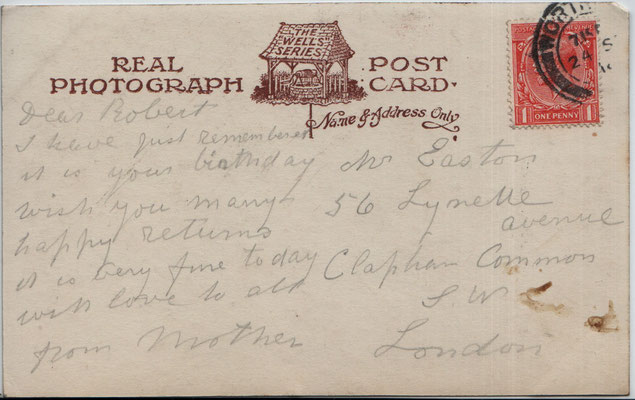 REAL
PHOTOGRAPH
THE
WELLS
SERIES
POST
CARD.
Name & Address Only
ONE PENNY
1 1
24 S
Dear Robert
I have just remembered
it is your birthday
wish you many
happy returns
it is very fine today
with love to all
from Mother
Mr Easton
56 Lynette
avenue
Clapham Common
S. W.
London